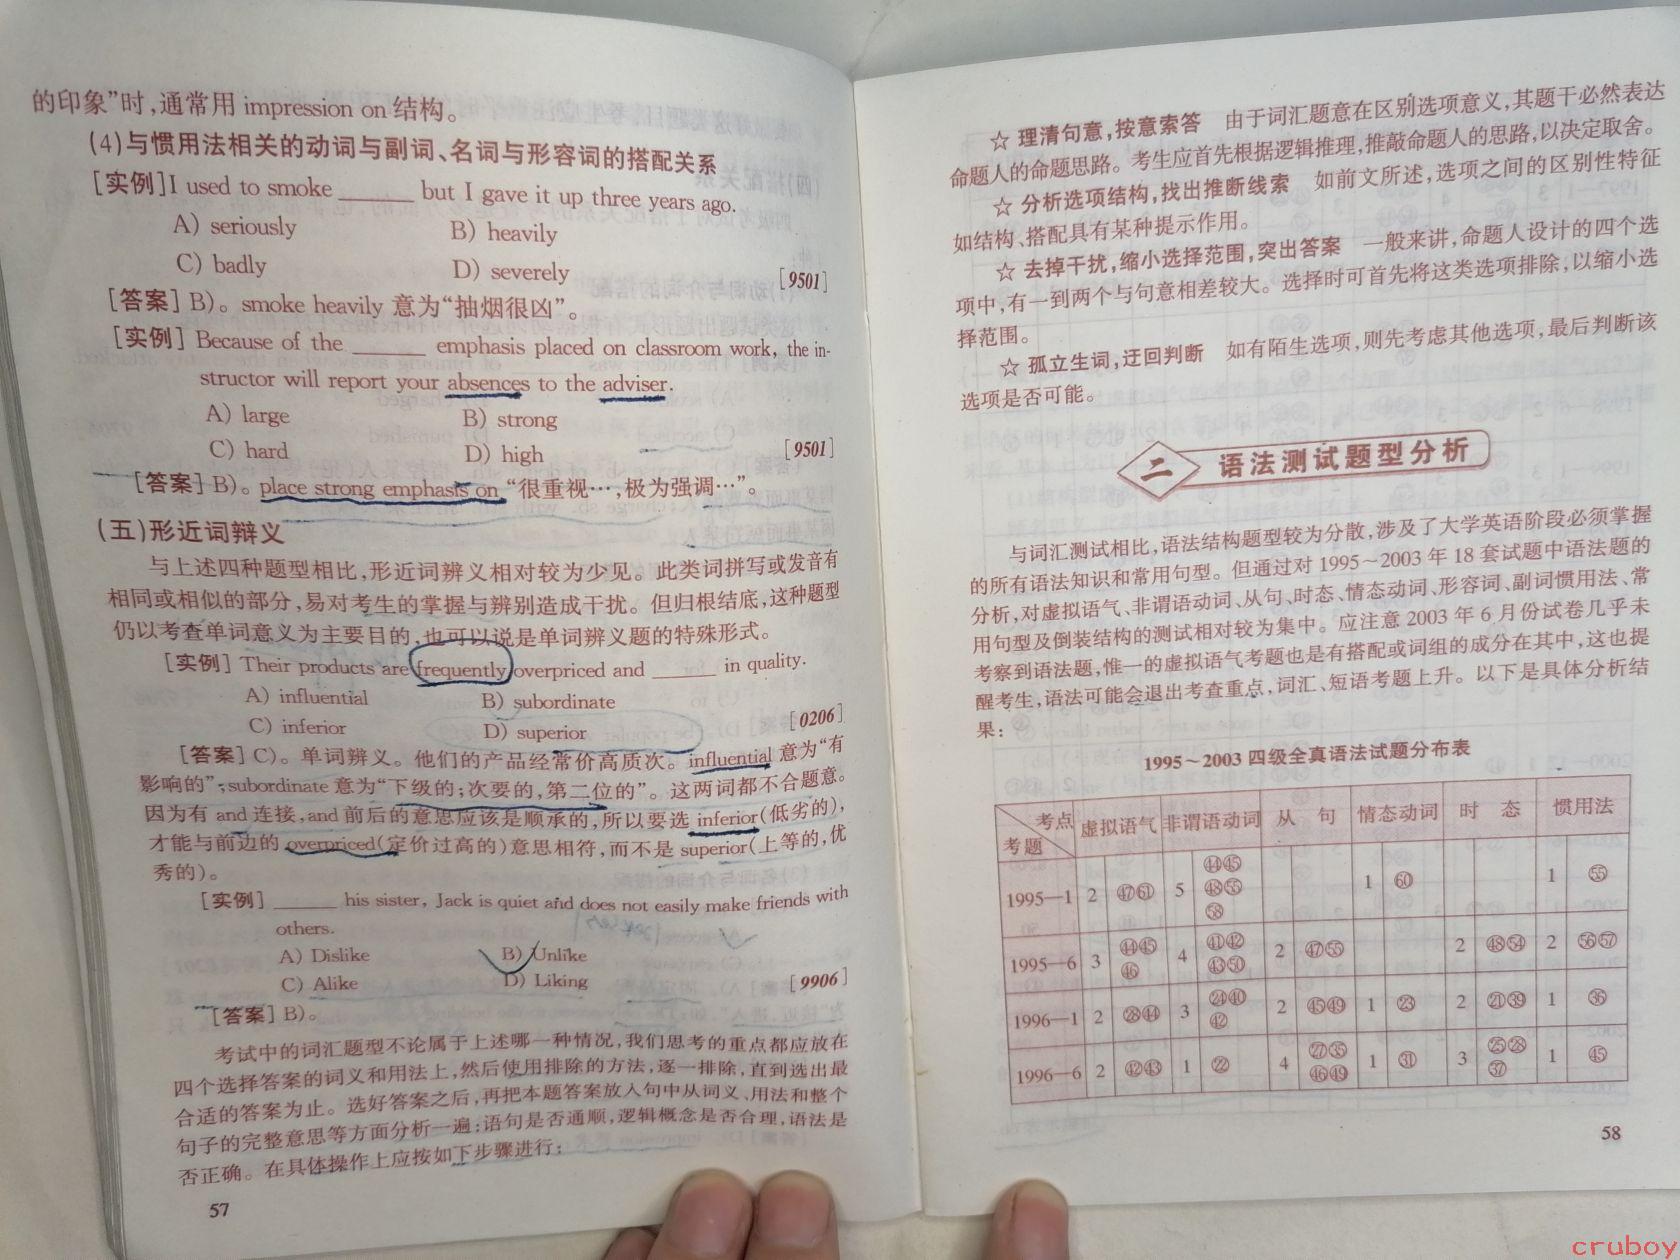 的印象”时,通常用 impression on 结构。
(4)与惯用法相关的动词与副词、名词与形容词的搭配关系
[实例]I used to smoke ______ but I gave it up three years ago.
A) seriously B) heavily
C) badly D) severely [9501]
[答案] B)。smoke heavily 意为“抽烟很凶”。
[实例] Because of the ______ emphasis placed on classroom work, the in-
structor will report your absences to the adviser.
A) large B) strong
C) hard D) high [9501]
[答案] B)。place strong emphasis on “很重视…,极为强调…”。
(五)形近词辩义
与上述四种题型相比,形近词辨义相对较为少见。此类词拼写或发音有
相同或相似的部分,易对考生的掌握与辨别造成干扰。但归根结底,这种题型
仍以考查单词意义为主要目的,也可以说是单词辨义题的特殊形式。
[实例] Their products are frequently overpriced and ______ in quality.
A) influential B) subordinate
C) inferior D) superior [0206]
[答案] C)。单词辨义。他们的产品经常价高质次。influential 意为“有
影响的”;subordinate 意为“下级的;次要的,第二位的”。这两词都不合题意。
因为有 and 连接,and 前后的意思应该是顺承的,所以要选 inferior(低劣的),
才能与前边的 overpriced(定价过高的)意思相符,而不是 superior(上等的,优
秀的)。
[实例] ______ his sister, Jack is quiet and does not easily make friends with
others.
A) Dislike B) Unlike
C) Alike D) Liking [9906]
[答案] B)。
考试中的词汇题型不论属于上述哪一种情况,我们思考的重点都应放在
四个选择答案的词义和用法上,然后使用排除的方法,逐一排除,直到选出最
合适的答案为止。选好答案之后,再把本题答案放入句中从词义、用法和整个
句子的完整意思等方面分析一遍:语句是否通顺,逻辑概念是否合理,语法是
否正确。在具体操作上应按如下步骤进行:
57
☆ 理清句意,按意索答 由于词汇题意在区别选项意义,其题干必然表达
命题人的命题思路。考生应首先根据逻辑推理,推敲命题人的思路,以决定取舍。
☆ 分析选项结构,找出推断线索 如前文所述,选项之间的区别性特征
如结构、搭配具有某种提示作用。
☆ 去掉干扰,缩小选择范围,突出答案 一般来讲,命题人设计的四个选
项中,有一到两个与句意相差较大。选择时可首先将这类选项排除,以缩小选
择范围。
☆ 孤立生词,迂回判断 如有陌生选项,则先考虑其他选项,最后判断该
选项是否可能。
二 语法测试题型分析
与词汇测试相比,语法结构题型较为分散,涉及了大学英语阶段必须掌握
的所有语法知识和常用句型。但通过对 1995~2003 年 18 套试题中语法题的
分析,对虚拟语气、非谓语动词、从句、时态、情态动词、形容词、副词惯用法、常
用句型及倒装结构的测试相对较为集中。应注意 2003 年 6 月份试卷几乎未
考察到语法题,惟一的虚拟语气考题也是有搭配或词组的成分在其中,这也提
醒考生,语法可能会退出考查重点,词汇、短语考题上升。以下是具体分析结
果:
1995~2003 四级全真语法试题分布表
考点 考题 虚拟语气 非谓语动词 从 句 情态动词 时 态 惯用法
1995—1 2 ㊼61 5 ㊹㊺㊽5558 1 60 1 55
1995—6 3 ㊹㊺㊻ 4 ㊶㊷㊸㊿ 2 ㊼55 2 ㊽54 2 5657
1996—1 2 ㉘㊹ 3 ㉔㊵㊷ 2 ㊺㊾ 1 ㉓ 2 ㉑㊴ 1 ㊱
1996—6 2 ㊷㊸ 1 ㉒ 4 ㉗㉟㊻㊾ 1 ㉛ 3 ㉕㉘㊲ 1 ㊺
58
cruboy